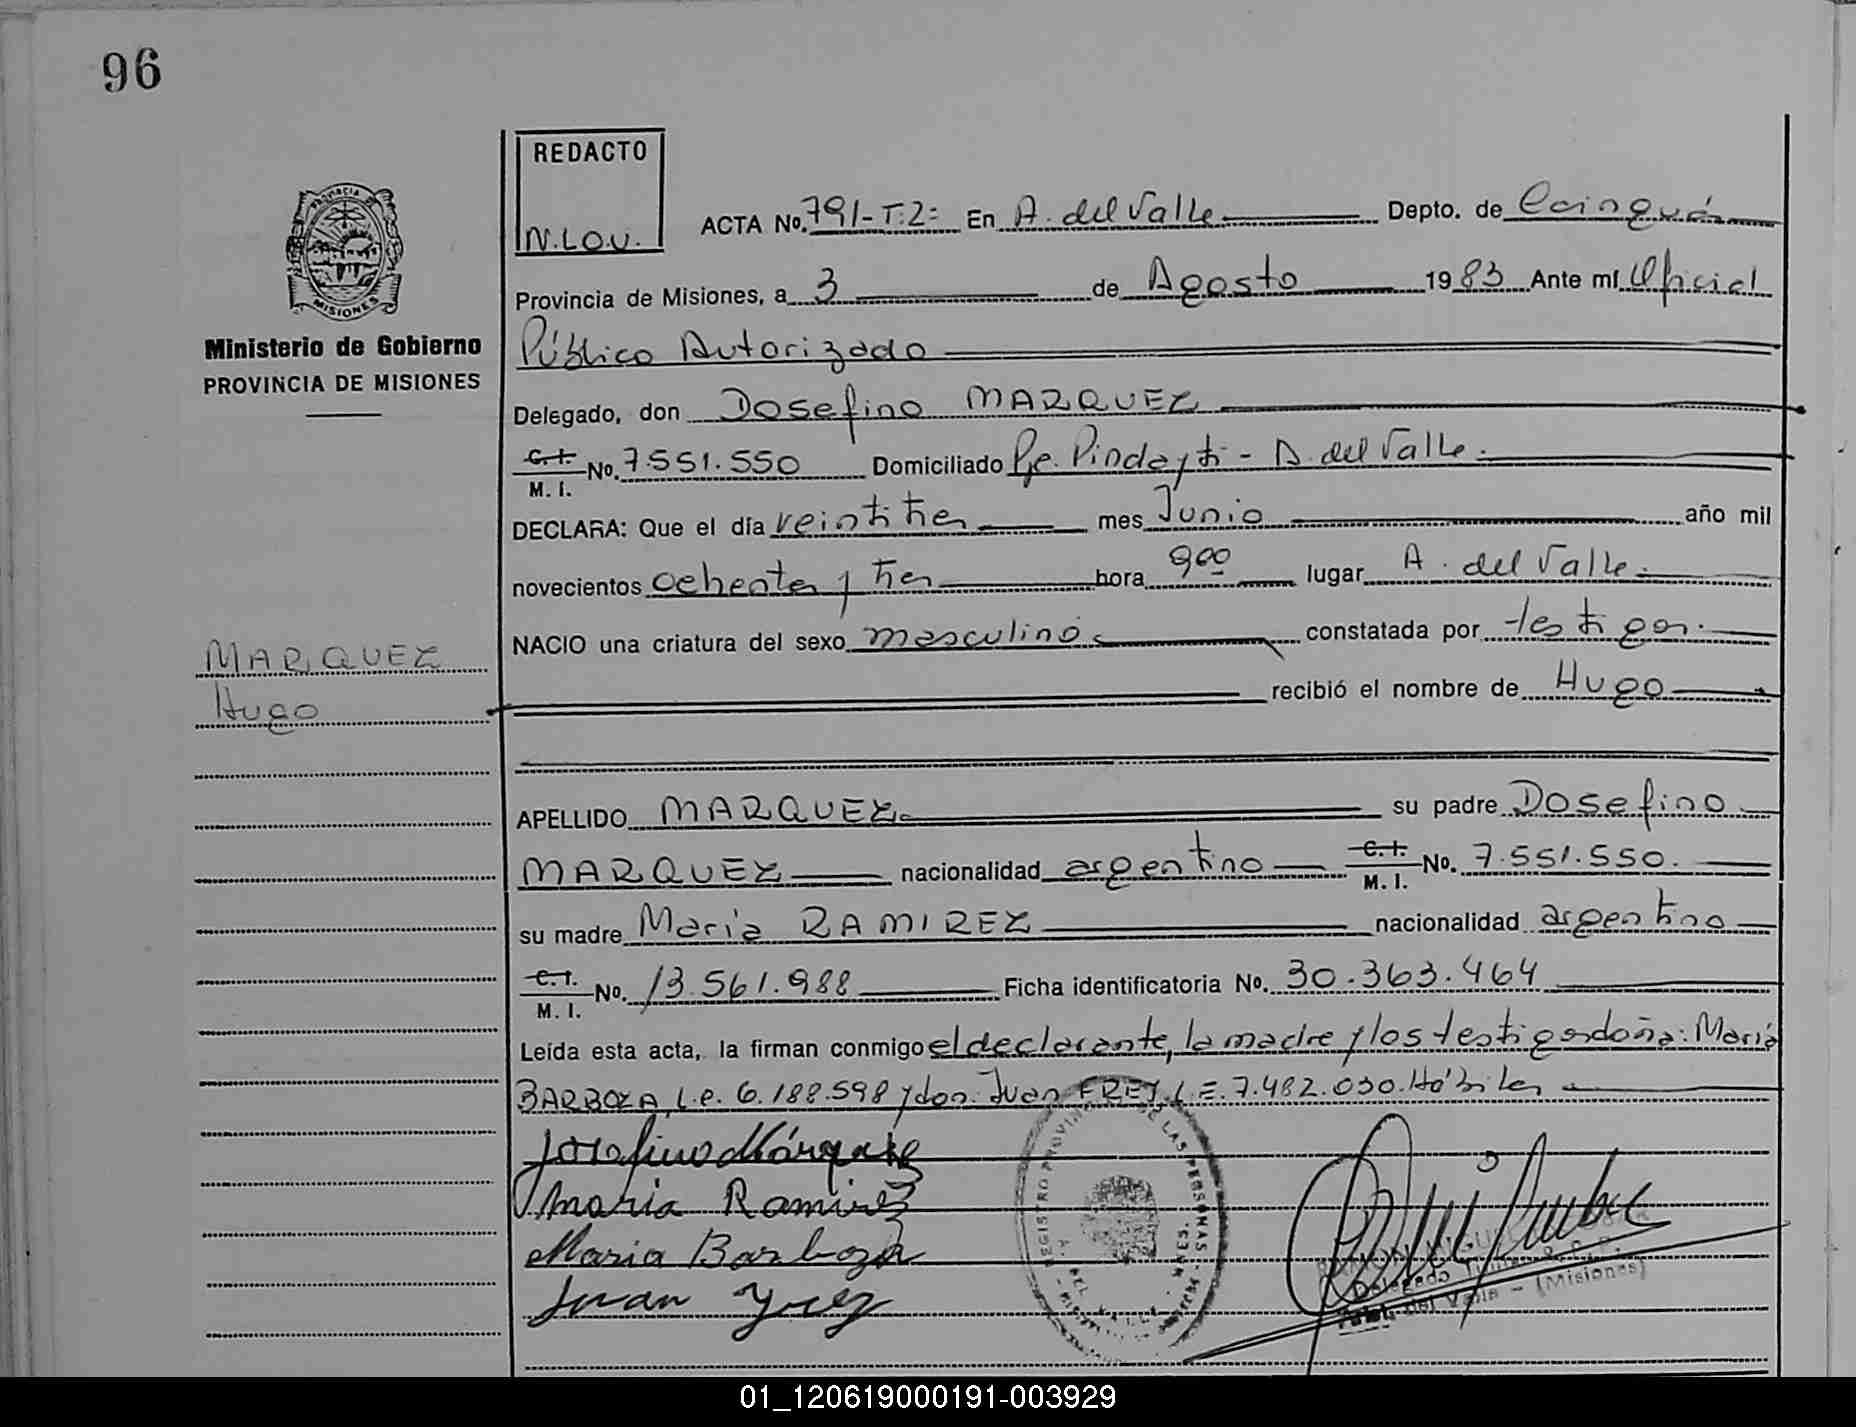 96
REDACTO
N.LOU.
ACTA No. 791-T:2= En A. del Valle Depto. de Cainguás
Provincia de Misiones, a 3 de Agosto 1983 Ante mí Oficial
Público Autorizado
Ministerio de Gobierno
PROVINCIA DE MISIONES
Delegado, don Josefino MARQUEZ
C.I. M. I. No. 7.551.550 Domiciliado Pje. Pindayti - A. del Valle.
DECLARA: Que el día veintitres mes Junio año mil
novecientos ochenta y tres hora 9oo lugar A. del Valle.
NACIO una criatura del sexo masculino constatada por testigos.
MARQUEZ
Hugo
recibió el nombre de Hugo
APELLIDO MARQUEZ su padre Josefino
MARQUEZ nacionalidad argentino C.I. M. I. No. 7.551.550.
su madre Maria RAMIREZ nacionalidad argentina
C.I. M. I. No. 13.561.988 Ficha identificatoria No. 30.363.464
Leída esta acta, la firman conmigo el declarante, la madre y los testigos doña: María
BARBOZA L.e. 6.188.598 y don Juan FREY L.E. 7.482.030. Hábiles
Josefino Márquez
Maria Ramirez
Maria Barboza
Juan
REGISTRO PROVINCIAL DE LAS PERSONAS
Delegado Titular R.P.P.
Arist. del Valle - (Misiones)
01_120619000191-003929